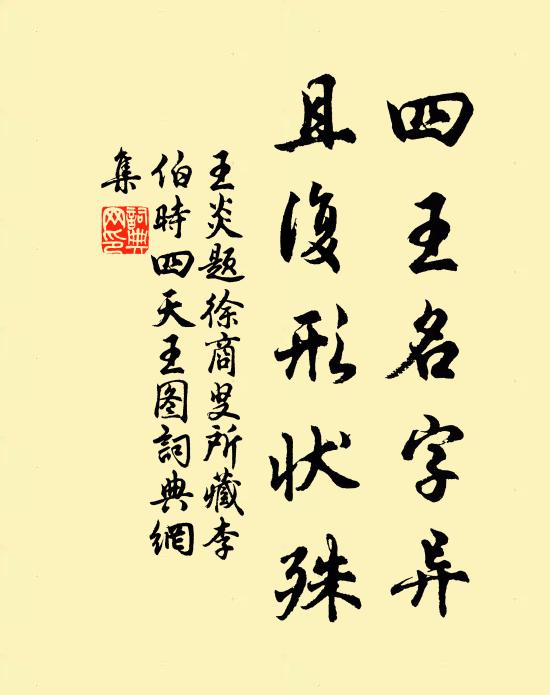 四王名字异
且復形状殊
王炎题徐商叟所藏李
伯時四天王图詞典網
集
詞典
网印